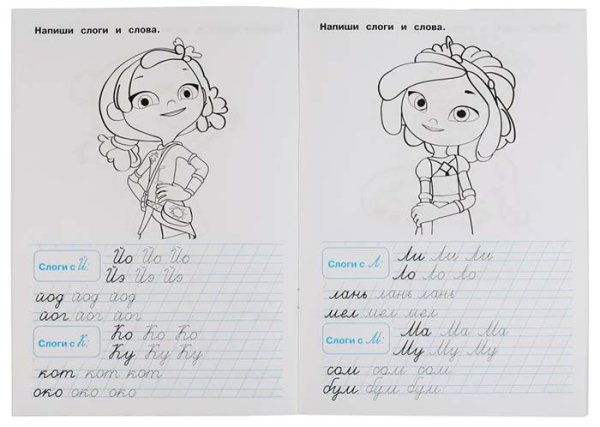 Напиши слоги и слова.
Слоги с Й:
Йо Йо Йо
Йэ Йэ Йэ
йод йод йод
йог йог йог
Слоги с К:
Ко Ко Ко
Ку Ку Ку
кот кот кот
око око око
Напиши слоги и слова.
Слоги с Л:
Ли Ли Ли
Ло Ло Ло
лань лань лань
мел мел мел
Слоги с М:
Ма Ма Ма
Му Му Му
сом сом сом
бум бум бум